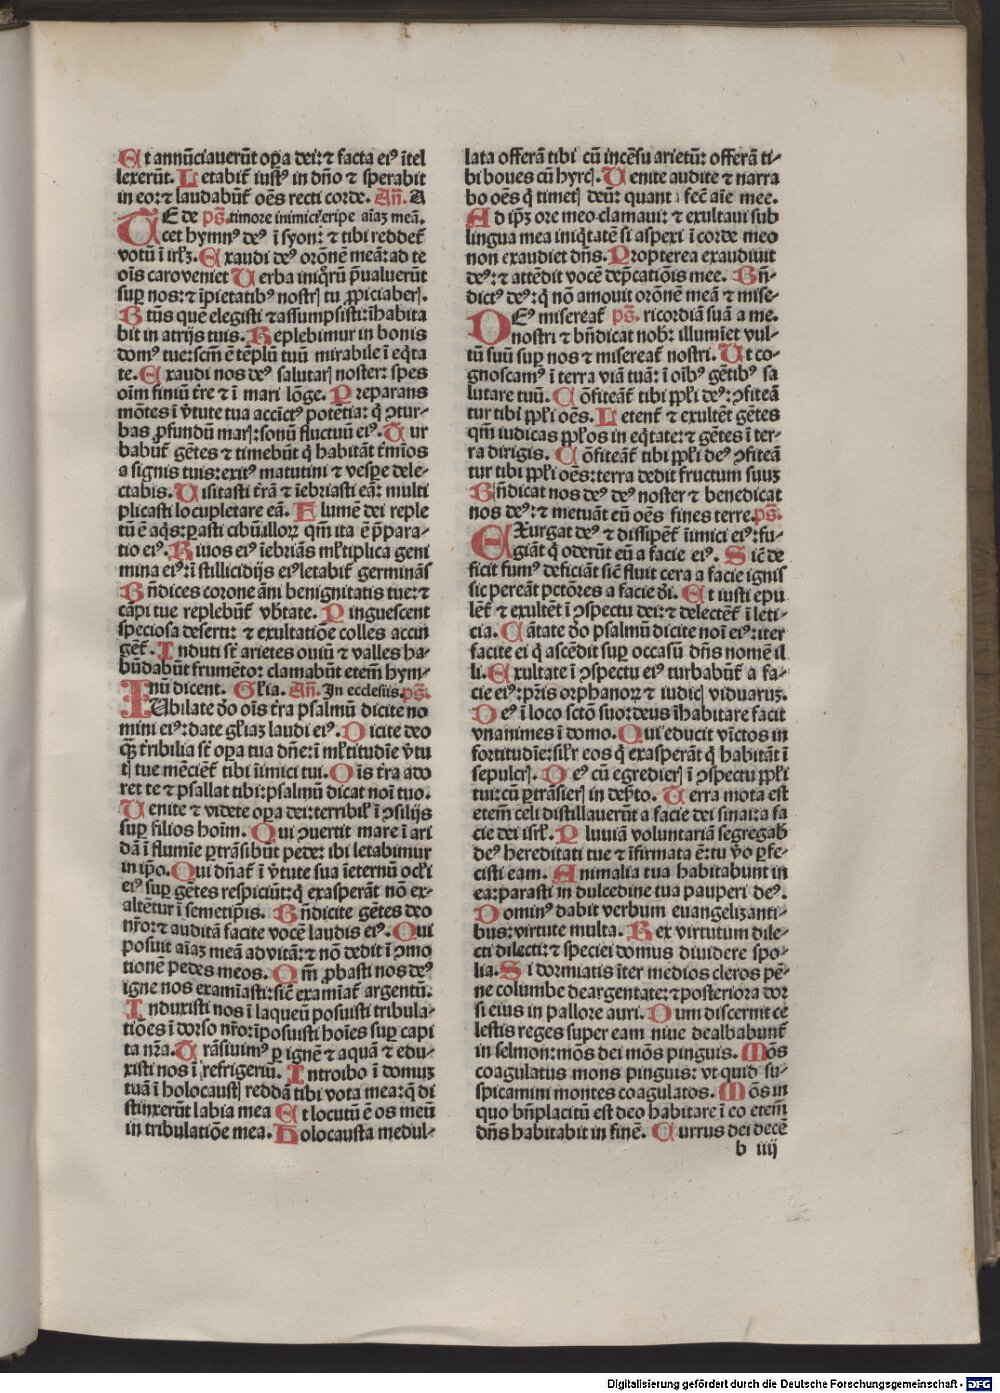 Et annūciaverūt oꝑa dei: ⁊ facta eiꝰ ītel
lexerūt. Letabit᷑ iustꝰ in dn̄o ⁊ sperabit
in eo: ⁊ laudabūt᷑ oēs recti corde. An̄. A
TE de ps̄. timore inimici eripe aīaꝫ meā.
cet hymnꝰ deꝰ ī syon: ⁊ tibi reddet᷑
votū ī irl̄ꝫ. Exaudi deꝰ orōnē meā: ad te
oīs caro veniet Verba iniq̄rū p̄ualuerūt
suꝑ nos: ⁊ īpietatibꝰ nostrꝭ tu ꝓpiciaberꝭ.
Btūs quē elegisti ⁊ assumpsisti: īhabita
bit in atrijs tuis. Replebimur in bonis
domꝰ tue: scm̄ ē tēplū tuū mirabile ī eq̄ta
te. Exaudi nos deꝰ salutarꝭ noster: spes
oīm finiū t̄re ⁊ ī mari lōge. Preparans
mōtes ī v̄tute tua accīctꝰ potētia: q̇ ꝯtur-
bas ꝓfundū marꝭ: sonū fluctuū eiꝰ. Tur
babūt᷑ gētes ⁊ timebūt q̇ habitāt t̄mīos
a signis tuis: exitꝰ matutini ⁊ vesꝑe dele-
ctabis. Visitasti t̄rā ⁊ īebriasti eā: multi
plicasti locupletare eā. Flumē dei reple
tū ē aq̄s: ꝑasti cibū illoꝝ qm̄ ita ē p̄para-
tio eiꝰ. Riuos eiꝰ īebriās ml̄tiplica geni
mina eiꝰ: ī stillicidijs eiꝰ letabit᷑ germināſ
Bn̄dices corone āni benignitatis tue: ⁊
cāpi tue replebūt᷑ vb̄tate. Pinguescent
speciosa deserti: ⁊ exultatiōe colles accin
gēt᷑. Induti st̄ arietes ouiū ⁊ valles ha-
būdabūt frumēto: clamabūt etem̄ hym-
nū dicent. Gl̄ia. An̄. In ecclesiis. ps̄.
IUbilate d̄o oīs t̄ra psalmū dicite no
mini eiꝰ: date gl̄iaꝫ laudi eiꝰ. Dicite deo
qꝫ t̄ribilia st̄ oꝑa tua dn̄e: ī ml̄titudīe v̄tu
tꝭ tue mēciēt᷑ tibi īimici tui. Oīs t̄ra ado
ret te ⁊ psallat tibi: psalmū dicat noī tuo.
Venite ⁊ videte oꝑa dei: terribil̄ ī ꝯsilijs
suꝑ filios hoīm. Qui ꝯuertit mare ī ari
dā ī flumīe ꝑtrāsibūt pede: ibi letabimur
in ip̄o. Qui dn̄at᷑ ī v̄tute sua īeternū ocl̄i
eiꝰ suꝑ gētes respiciūt: q̇ exasperāt nō ex-
altētur ī semetip̄is. Bn̄dicite gētes deo
nr̄o: ⁊ auditā facite vocē laudis eiꝰ. Qui
posuit aīaꝫ meā ad vitā: ⁊ nō dedit ī ꝯmo
tionē pedes meos. Qm̄ ꝓbasti nos deꝰ
igne nos examīasti: sic̄ examīat᷑ argentū.
Induxisti nos ī laqueū posuisti tribula-
tiōes ī dorso nr̄o: īposuisti hoīes suꝑ capi
ta nr̄a. Trāsiuimꝰ ꝑ ignē ⁊ aquā ⁊ edu-
xisti nos ī refrigeriū. Introibo ī domuꝫ
tuā ī holocaustꝭ reddā tibi vota mea: q̄ di
stinxerūt labia mea Et locutū ē os meū
in tribulatiōe mea. Holocausta medul-
lata offerā tibi cū incēsu arietū: offerā ti-
bi boues cū hyrcꝭ. Venite audite ⁊ narra
bo oēs q̇ timetꝭ deū: quanta fec̄ aīe mee.
Ad ip̄ꝫ ore meo clamaui: ⁊ exultaui sub
lingua mea iniq̄tatē si aspexi ī corde meo
non exaudiet dn̄s. Propterea exaudiuit
deꝰ: ⁊ attēdit vocē dep̄catiōis mee. Bn̄-
dictꝰ deꝰ: q̇ nō amouit orōnē meā ⁊ mise-
DEꝰ misereat᷑ ps̄. ricordiā suā a me.
nostri ⁊ bn̄dicat nob̄: illumīet vul-
tū suū suꝑ nos ⁊ misereat᷑ nostri. Ut co-
gnoscamꝰ ī terra viā tuā: ī oīb̄ꝰ gētibꝰ sa
lutare tuū. Cōfiteāt᷑ tibi ppl̄i deꝰ: ꝯfiteā
tur tibi ppl̄i oēs. Letent᷑ ⁊ exultēt gētes
qm̄ iudicas ppl̄os in eq̄tate: ⁊ gētes ī ter-
ra dirigis. Cōfiteāt᷑ tibi ppl̄i deꝰ ꝯfiteā
tur tibi ppl̄i oēs: terra dedit fructum suuꝫ
Bn̄dicat nos deꝰ deꝰ noster ⁊ benedicat
nos deꝰ: ⁊ metuāt eū oēs fines terre. ps̄.
EXurgat deꝰ ⁊ dissipēt᷑ īimici eiꝰ: fu-
giāt q̇ oderūt eū a facie eiꝰ. Sic̄ de
ficit fumꝰ deficiāt sic̄ fluit cera a facie ignis
sic pereāt pctōres a facie d̄i. Et iusti epu
lēt᷑ ⁊ exultēt ī ꝯspectu dei: ⁊ delectēt᷑ ī leti-
cia. Cātate d̄o psalmū dicite noī eiꝰ: iter
facite ei q̇ ascēdit suꝑ occasū dn̄s nomē il
li. Exultate ī ꝯspectu eiꝰ turbabūt᷑ a fa-
cie eiꝰ: pr̄is orphanoꝝ ⁊ iudicꝭ viduaruꝫ.
Deꝰ ī loco sctō suo: deus īhabitare facit
vnanimes ī domo. Qui educit vīctos in
fortitudīe: sil̄r eos q̇ exasperāt q̇ habitāt ī
sepulcrꝭ. Deꝰ cū egredierꝭ ī ꝯspectu ppl̄i
tui: cū ꝑtrāsierꝭ in deẜto. Terra mota est
etem̄ celi distillauerūt a facie dei sinai: a fa
cie dei isrl̄. Pluuiā voluntariā segregab̄
deꝰ hereditati tue ⁊ īfirmata ē: tu v̄o ꝑfe-
cisti eam. Animalia tua habitabunt in
ea: parasti in dulcedine tua pauperi deꝰ.
Dominꝰ dabit verbum euangelizanti-
bus: virtute multa. Rex virtutum dile-
cti dilecti: ⁊ speciei domus diuidere spo-
lia. Si dormiatis īter medios cleros pē-
ne columbe deargentate: ⁊ posteriora dor
si eius in pallore auri. Dum discernit ce
lestis reges super eam niue dealbabunt᷑
in selmon: mōs dei mōs pinguis. Mōs
coagulatus mons pinguis: vt quid su-
spicamini montes coagulatos. Mōs in
quo bn̄placitū est deo habitare ī eo etem̄
dn̄s habitabit in finē. Currus dei decē
b iiij
Digitalisierung gefördert durch die Deutsche Forschungsgemeinschaft - DFG